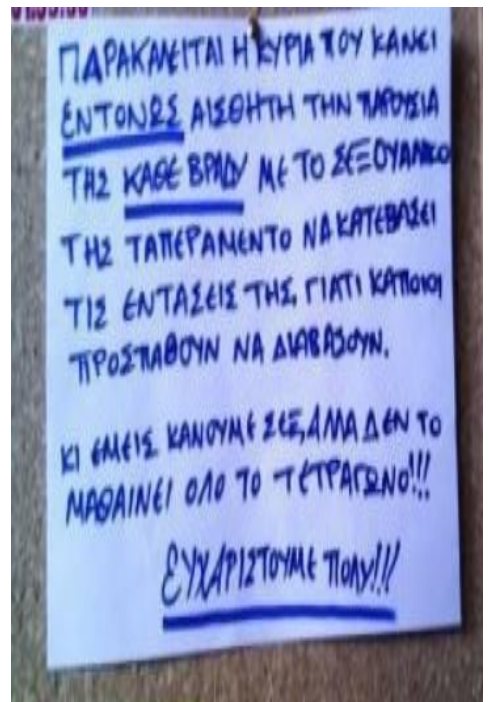 ΠΑΡΑΚΑΛΕΙΤΑΙ Η ΚΥΡΙΑ ΠΟΥ ΚΑΝΕΙ
ΕΝΤΟΝΩΣ ΑΙΣΘΗΤΗ ΤΗΝ ΠΑΡΟΥΣΙΑ
ΤΗΣ ΚΑΘΕ ΒΡΑΔΥ ΜΕ ΤΟ ΣΕΞΟΥΑΛΙΚΟ
ΤΗΣ ΤΑΠΕΡΑΜΕΝΤΟ ΝΑ ΚΑΤΕΒΑΣΕΙ
ΤΙΣ ΕΝΤΑΣΕΙΣ ΤΗΣ, ΓΙΑΤΙ ΚΑΠΟΙΟΙ
ΠΡΟΣΠΑΘΟΥΝ ΝΑ ΔΙΑΒΑΣΟΥΝ.
ΚΙ ΕΜΕΙΣ ΚΑΝΟΥΜΕ ΣΕΞ, ΑΜΑ ΔΕΝ ΤΟ
ΜΑΘΑΙΝΕΙ ΟΛΟ ΤΟ ΤΕΤΡΑΓΩΝΟ!!!
ΕΥΧΑΡΙΣΤΟΥΜΕ ΠΟΛΥ!!!